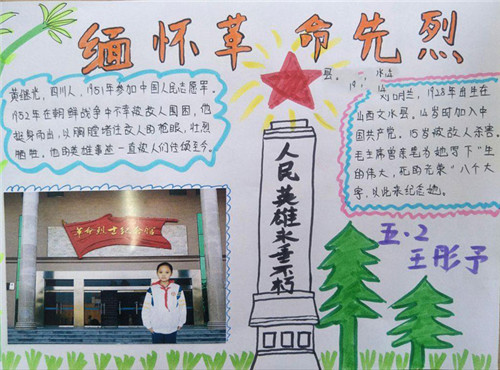 缅怀革命先烈
黄继光，四川人，1951年参加中国人民志愿军。
1952年在朝鲜战争中不幸被敌人围困，他
挺身而出，以胸膛堵住敌人的枪眼，壮烈
牺牲。他的英雄事迹一直被人们传颂至今。
县。
刘胡兰，1928年出生在
山西文水县。14岁时加入中
国共产党。15岁被敌人杀害。
毛主席曾亲笔为她写下“生
的伟大，死的光荣”八个大
字，以此来纪念她。
人民英雄永垂不朽
革命烈士纪念馆
五·2
王彤予